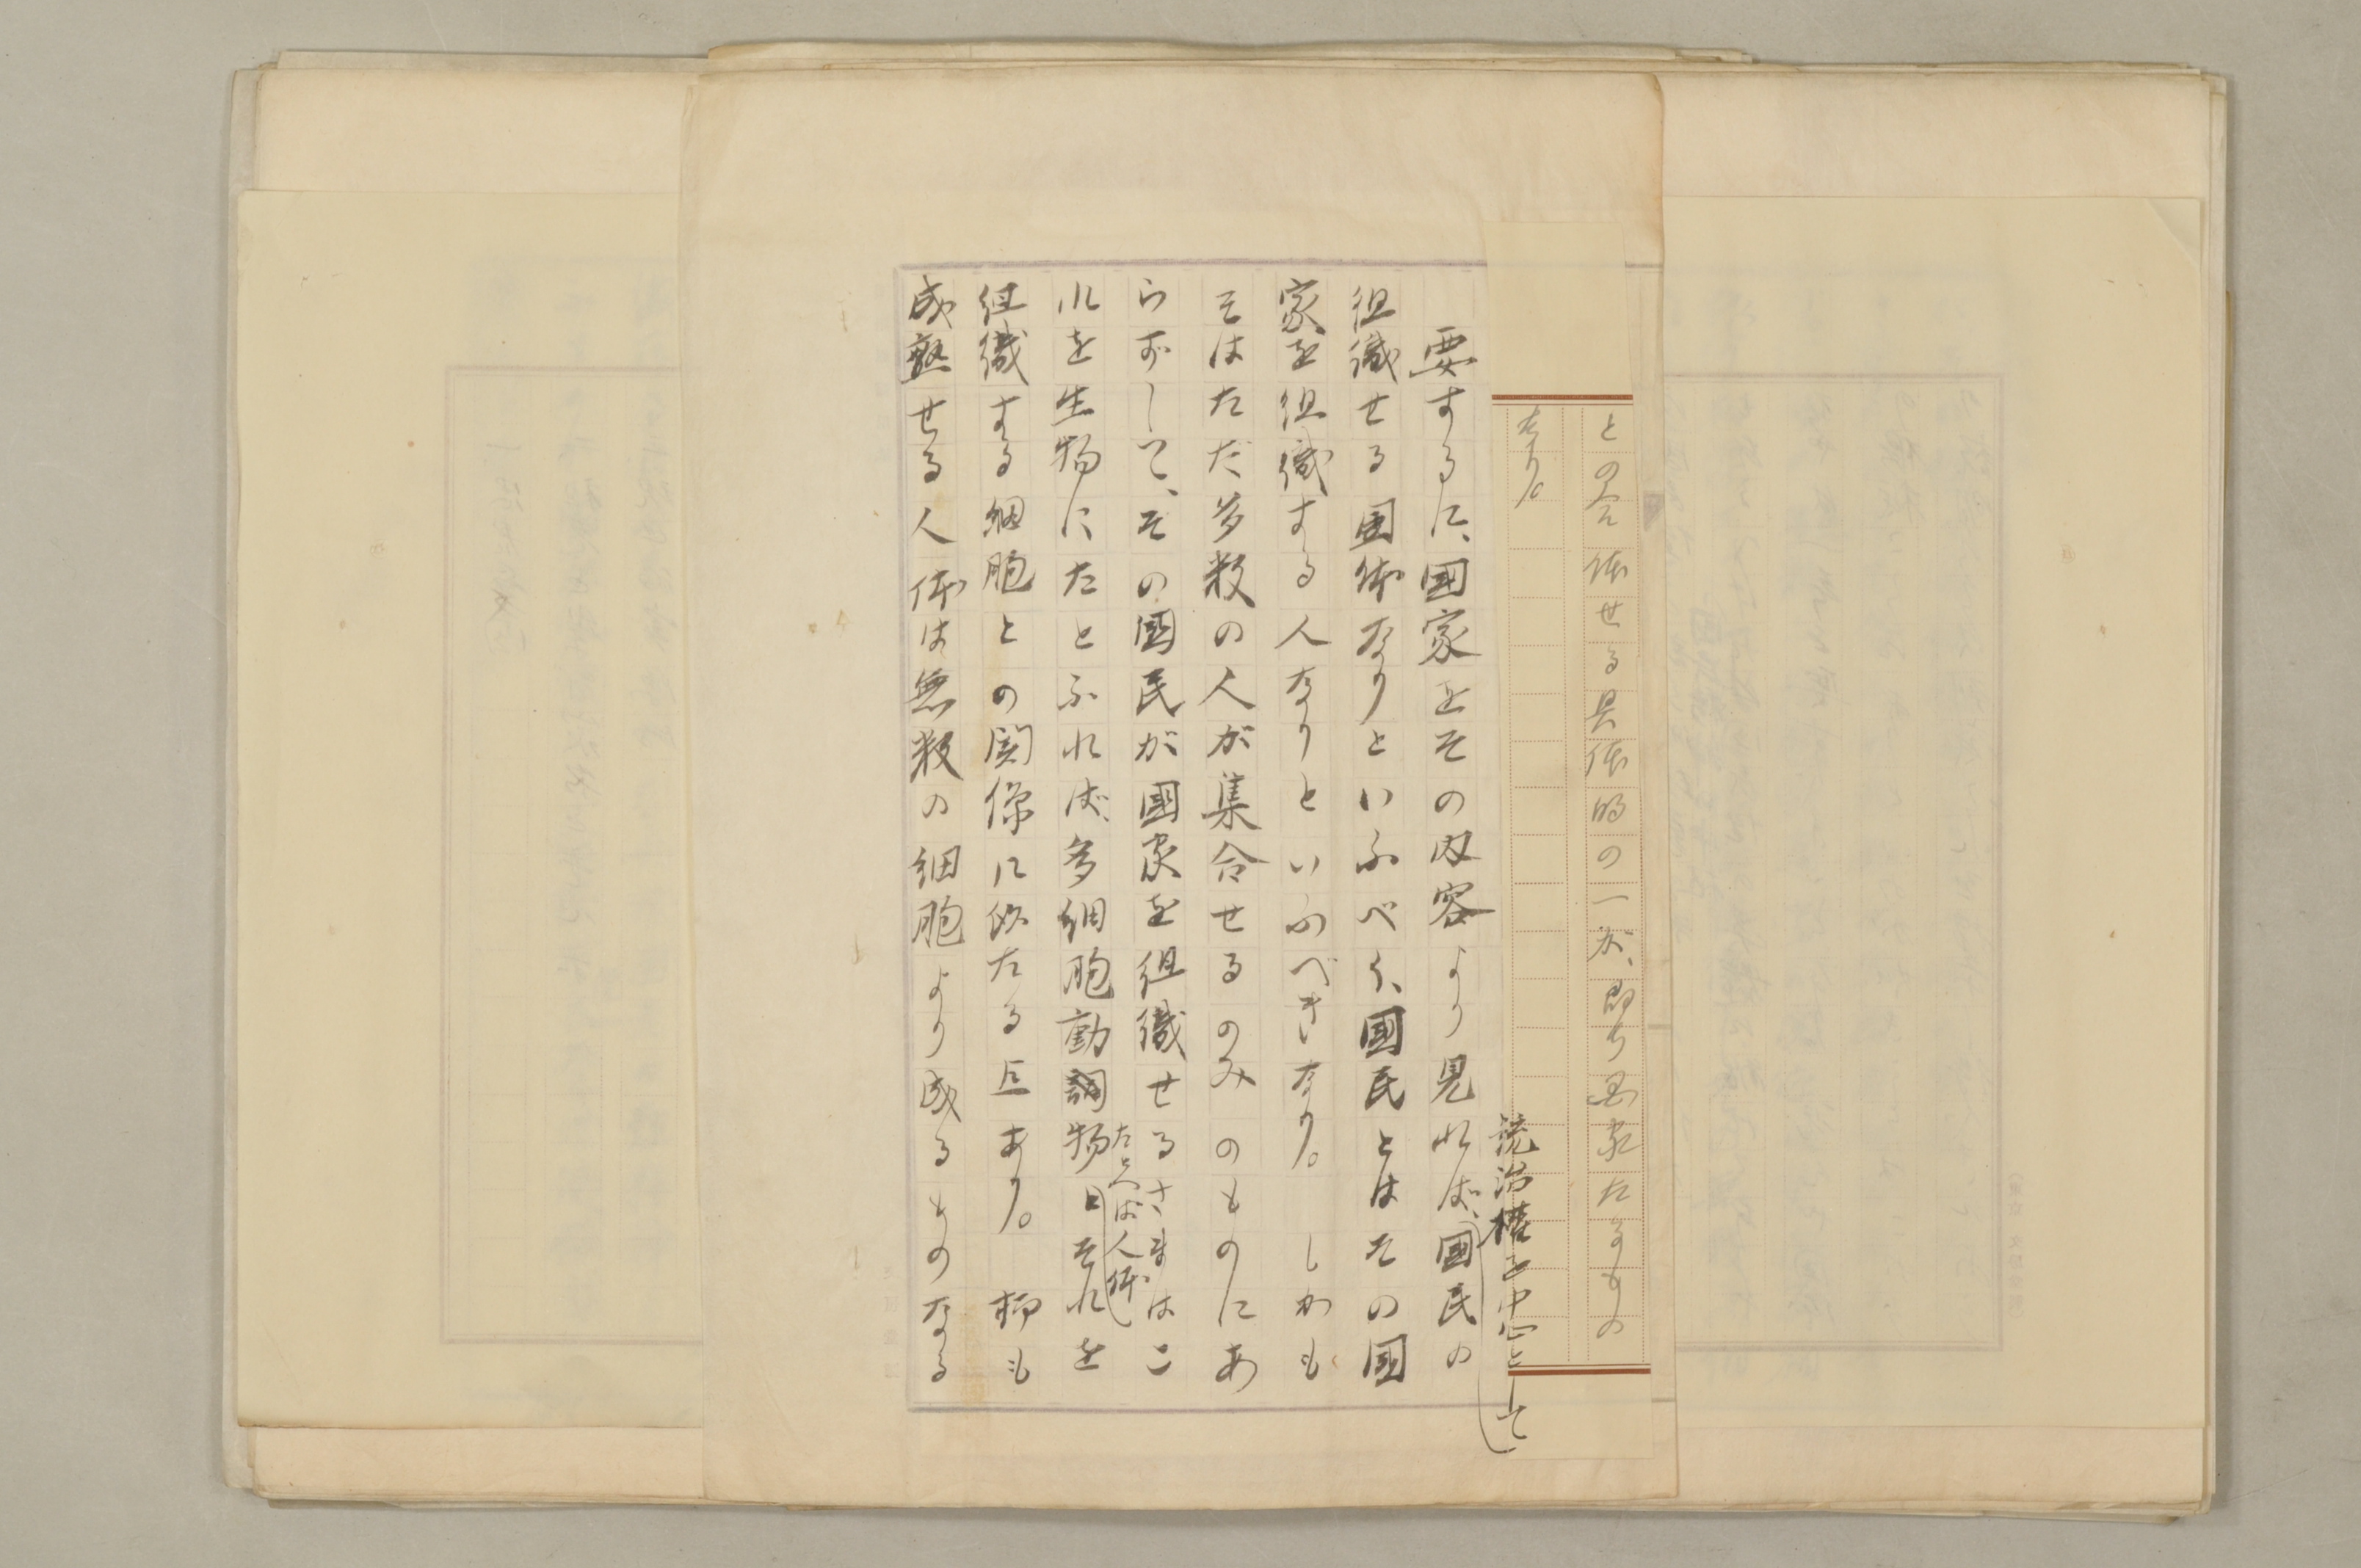 との合体せる具体的の一が、即ち国家たるもの
なり。
統治権を中心として
要するに、国家をその内容より見れば、國民の
組織せる団体なりといふべく、國民とはその國
家を組織する人なりといふべきなり。しかも
そはただ多数の人が集合せるのみのものにあ
らずして、その國民が國家を組織せるさまはこ
たとへば人体
れを生物にたとふれば、多細胞動物とそれを
組織する細胞との関係に似たる点あり。抑も
成熟せる人体は無数の細胞より成るものなる